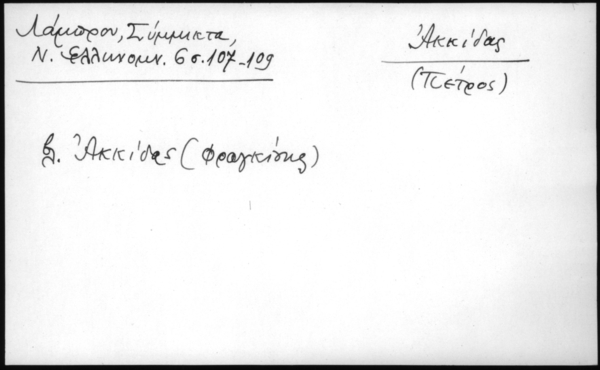 Λάμπρου, Σύμμικτα,
Ν. Ἑλληνομν. 6 σ. 107-109
Ἀκκίδας
(Πέτρος)
βλ. Ἀκκίδας (Φραγκίσκος)